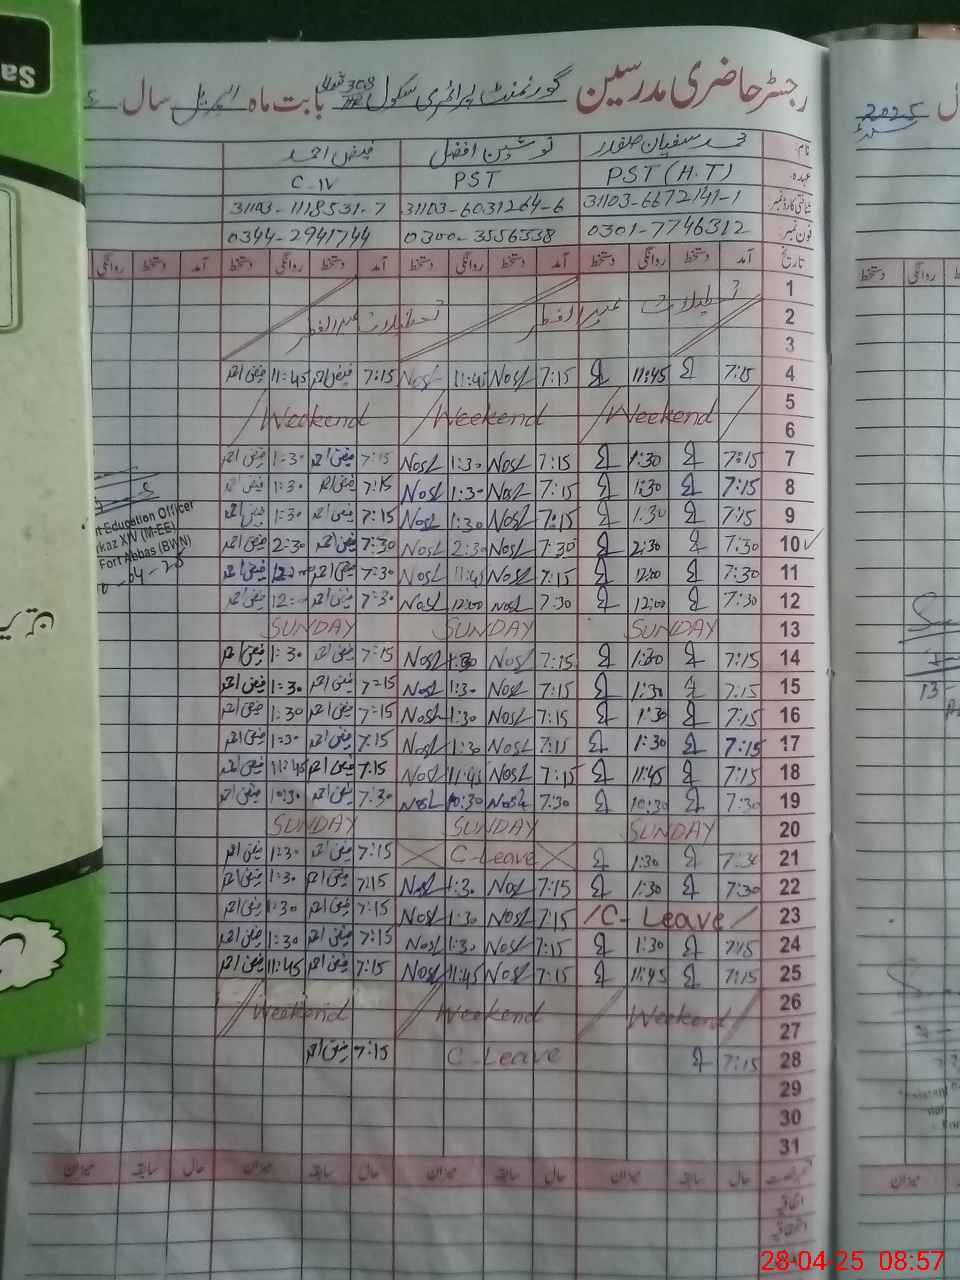 رجسٹر حاضری مدرسین گورنمنٹ پرائمری سکول 308 بابت ماہ اپریل سال
2025
نام: محمد سفیان صفدر نوشین افضل فیض احمد
عہدہ: PST (H.T) PST C-IV
شناختی کارڈ نمبر 31103-6672141-1 31103-6031264-6 31103-1118531-7
فون نمبر: 0301-7746312 0300-3556338 0344-2941744
تاریخ آمد دستخط روانگی دستخط آمد دستخط روانگی دستخط آمد دستخط روانگی دستخط آمد دستخط روانگی
1 تعطیلات عید الفطر تعطیلات عید الفطر
2
3
4 7:15 11:45 7:15 Nosh 11:45 Nosh 7:15 فیض احمد 11:45 فیض احمد
5 Weekend Weekend Weekend
6
7 7:15 1:30 7:15 Nosh 1:30 Nosh 7:15 فیض احمد 1:30 فیض احمد
8 7:15 1:30 7:15 Nosh 1:30 Nosh 7:15 فیض احمد 1:30 فیض احمد
9 7:15 1:30 7:15 Nosh 1:30 Nosh 7:15 فیض احمد 1:30 فیض احمد
10 7:30 2:30 7:30 Nosh 2:30 Nosh 7:30 فیض احمد 2:30 فیض احمد
11 7:30 12:00 7:15 Nosh 11:45 Nosh 7:30 فیض احمد 12:00 فیض احمد
12 7:30 12:00 7:30 Nosh 12:00 Nosh 7:30 فیض احمد 12:00 فیض احمد
13 SUNDAY SUNDAY SUNDAY
14 7:15 1:30 7:15 Nosh 1:30 Nosh 7:15 فیض احمد 1:30 فیض احمد
15 7:15 1:30 7:15 Nosh 1:30 Nosh 7:15 فیض احمد 1:30 فیض احمد
16 7:15 1:30 7:15 Nosh 1:30 Nosh 7:15 فیض احمد 1:30 فیض احمد
17 7:15 1:30 7:15 Nosh 1:30 Nosh 7:15 فیض احمد 1:30 فیض احمد
18 7:15 11:45 7:15 Nosh 11:45 Nosh 7:15 فیض احمد 11:45 فیض احمد
19 7:30 10:30 7:30 Nosh 10:30 Nosh 7:30 فیض احمد 10:30 فیض احمد
20 SUNDAY SUNDAY SUNDAY
21 7:30 1:30 C-Leave 7:15 فیض احمد 1:30 فیض احمد
22 7:30 1:30 7:15 Nosh 1:30 Nosh 7:15 فیض احمد 1:30 فیض احمد
23 C-Leave 7:15 Nosh 1:30 Nosh 7:15 فیض احمد 1:30 فیض احمد
24 7:15 1:30 7:15 Nosh 1:30 Nosh 7:15 فیض احمد 1:30 فیض احمد
25 7:15 11:45 7:15 Nosh 11:45 Nosh 7:15 فیض احمد 11:45 فیض احمد
26 Weekend Weekend Weekend
27
28 7:15 C-Leave 7:15 فیض احمد
29
30
31
حال سابقہ میزان حال سابقہ میزان حال سابقہ میزان حال سابقہ میزان
اتفاقیہ
Education Officer
rkaz XIV (M-EE)
Fort Abbas (BWN)
28-04-25 08:57